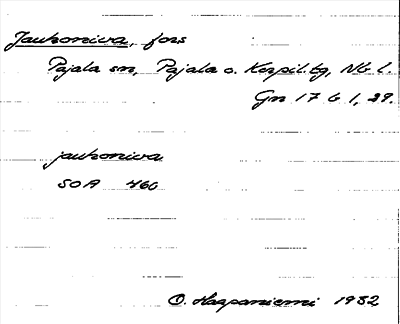 Jauhoniva, fors
Pajala sn, Pajala o. Korpil. tg, Nb l.
Gn 17 b 1, 29.
jauhoniva
SOA 460
O. Haapaniemi 1932